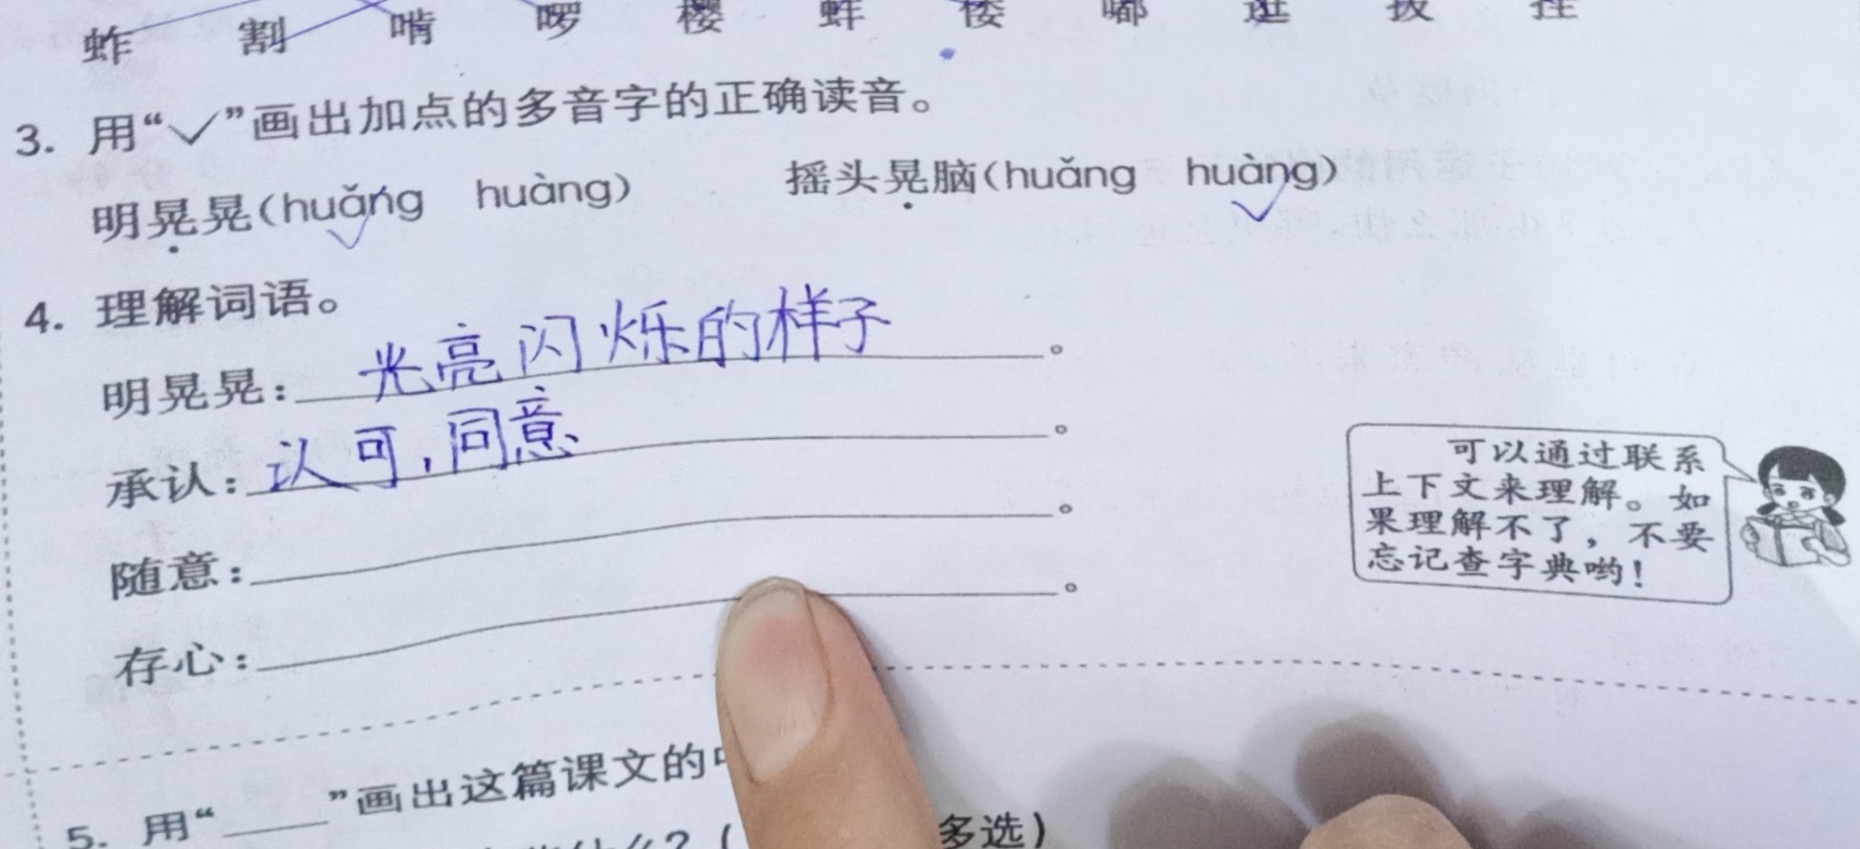 蚱 割 啃 啰 樱 蚌 偻 嘟 逛 拔
3. 用“✓”画出加点的多音字的正确读音。
明晃晃(huǎng huàng) 摇头晃脑(huǎng huàng)
4. 理解词语。
明晃晃:光亮闪烁的样子。
承认:认可,同意。
随意:。
存心:。
可以通过联系
上下文来理解。如
果理解不了,不要
忘记查字典哟!
5. 用“____”画出这篇课文的
多选)